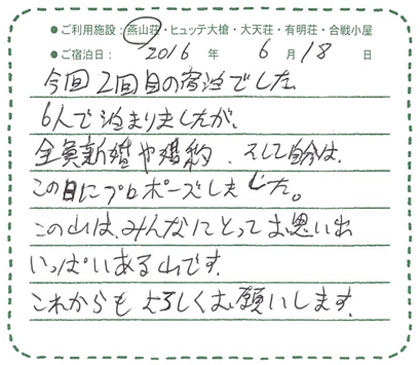 ●ご利用施設：燕山荘・ヒュッテ大槍・大天荘・有明荘・合戦小屋
●ご宿泊日： 2016 年 6 月 18 日
今回2回目の宿泊でした。
6人で泊まりましたが、
全員新婚や婚約、そして自分は、
この日にプロポーズしました。
この山は、みんなにとってお思い出
いっぱいある山です。
これからもよろしくお願いします。